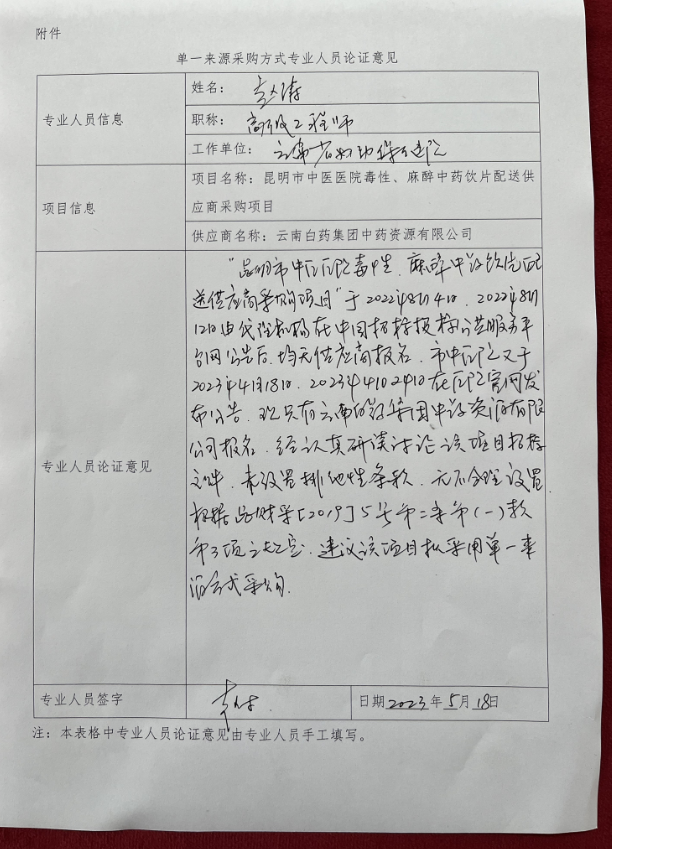 附件
单一来源采购方式专业人员论证意见
专业人员信息
姓名：
职称： 高级工程师
工作单位： 云南省妇幼保健院
项目信息
项目名称：昆明市中医医院毒性、麻醉中药饮片配送供
应商采购项目
供应商名称：云南白药集团中药资源有限公司
专业人员论证意见
“昆明市中医医院毒性、麻醉中药饮片配
送供应商采购项目”于2022年8月4日、2022年8月
12日由代理机构在中国招标投标公共服务平
台网公告后，均无供应商报名，市中医院又于
2023年4月18日、2023年4月24日在医院官网发
布公告，现只有云南白药集团中药资源有限
公司报名，经认真研读讨论该项目招标
文件，未设置排他性条款，无不合理设置
根据 财采[2019]5号第二条第(一)款
第3项之规定，建议该项目拟采用单一来
源方式采购.
专业人员签字
日期2023年5月18日
注：本表格中专业人员论证意见由专业人员手工填写。